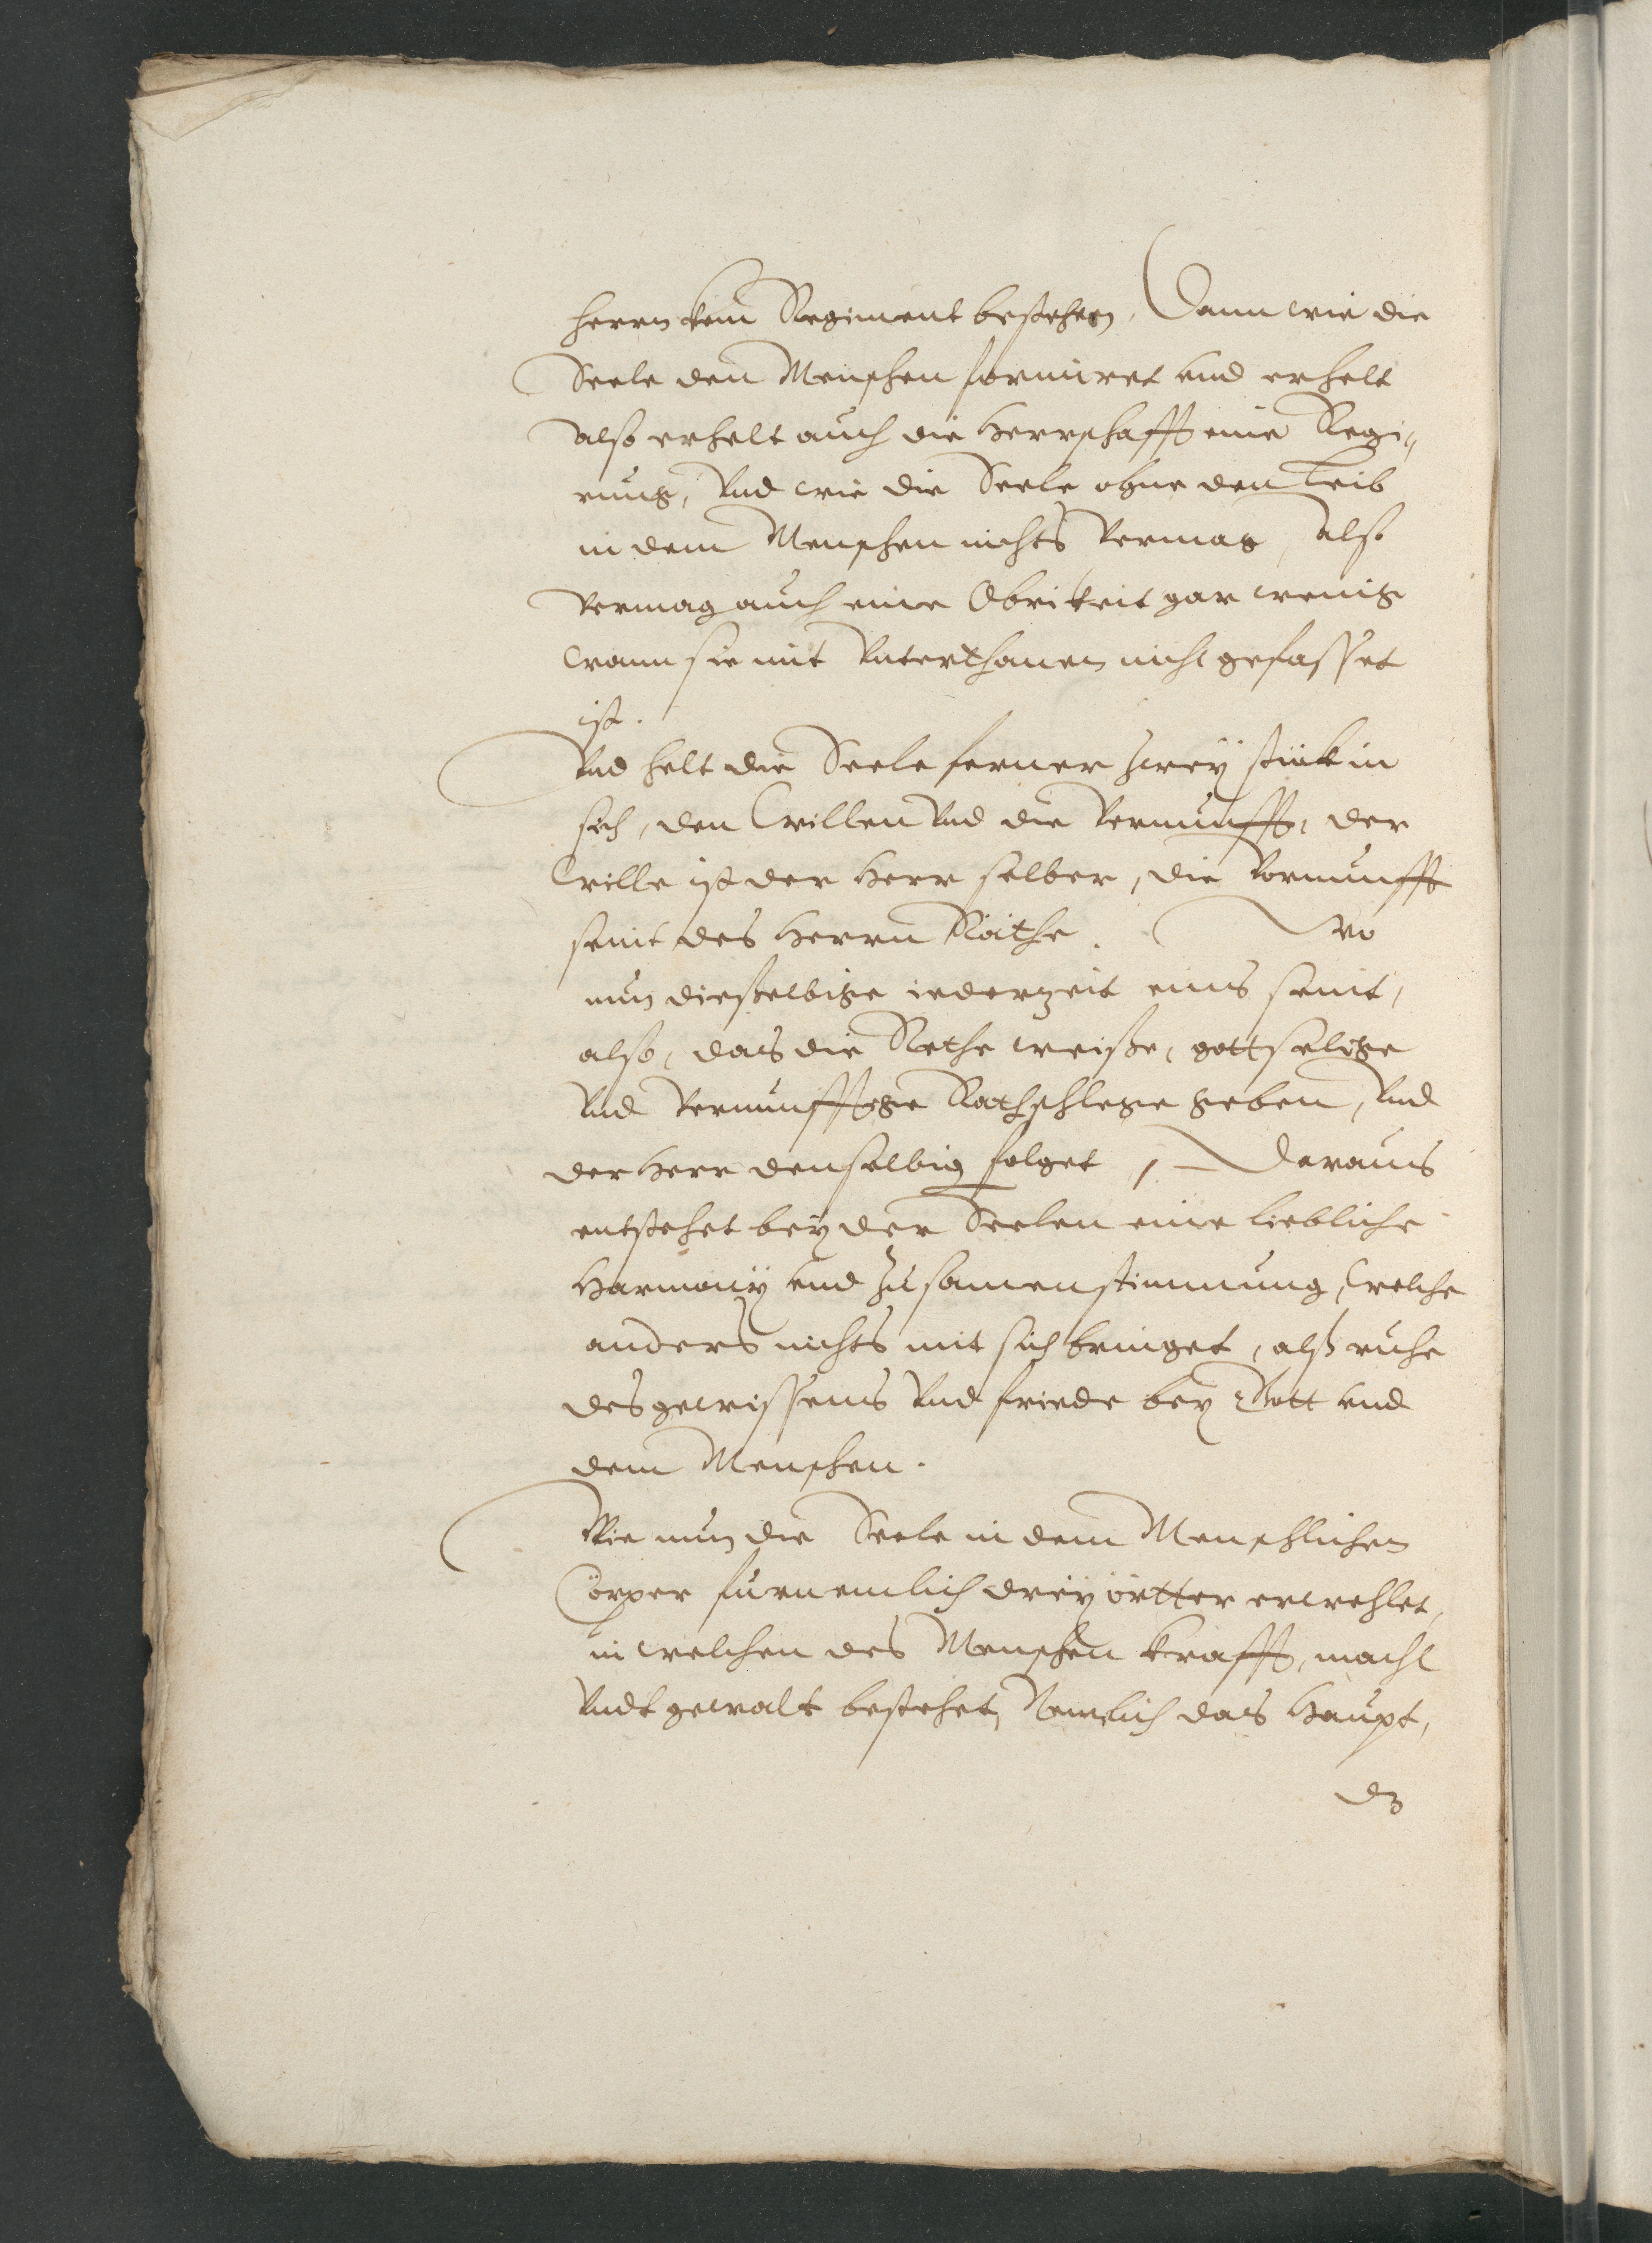 herrn kein Regiment bestehen, Dann wie die
Seele den Menschen formiret und erhelt
Also erhelt auch die Herrschafft eine Regi„
rung, Vnd wie die Seele ohne den Leib
in dem Menschen nichts Vermag, Also
Vermag auch eine Obrikeit gar wenig
Wann sie mit Vnterthanen nicht gefasset
ist.
Vnd helt die Seele ferner zweÿ stück in
sich, den Willen Vnd die Vernunfft, der
Wille ist der Herr selber, die Vernunfft
seint des Herrn Räthe. Wo
nun dieselbige iederzeit eins seint,
also, das die Rethe weise, gottselige
Vnd Vernunfftige Rathschlege geben, Vnd
der Herr denselbig folget, Daraus
entstehet beÿ der Seelen eine liebliche
Harmoniÿ und Zusamenstimmung, Welche
anders nichts mit sich bringet, alß ruhe
des gewissens Vnd friede beÿ Gott und
dem Menschen.
Wie nun die Seele in dem Menschlichen
Cörper fürnemlich dreÿ örtter erwehlet,
in welchen des Menschen krafft, macht
Vndt gewalt bestehet, Nemlich das Haupt,
dz